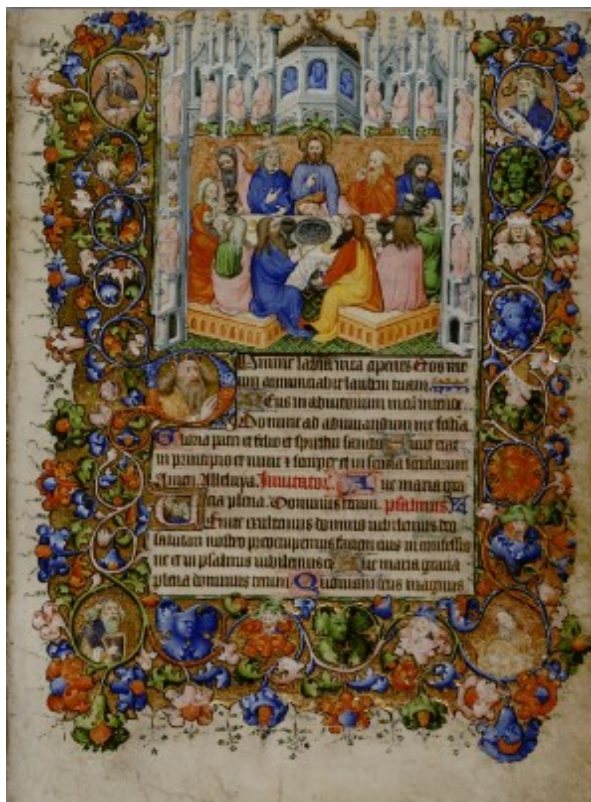 Domine labia mea aperies Et os me
um annunciabit laudem tuam
Deus in adiutorium meum intende
Domine ad adiuuandum me festina
Gloria patri et filio et spiritui sancto Sicut erat
in principio et nunc et semper et in secula seculorum
Amen. Alleluya. Aue maria gra
cia plena. Dominus tecum. psalmus
Uenite exultemus domino iubilemus deo
salutari nostro preoccupemus faciem eius in confessio
ne et in psalmis iubilemus ei Aue maria gratia
plena dominus tecum Quoniam deus magnus